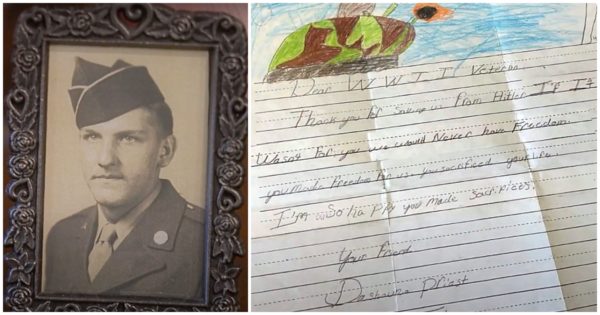 Dear W W I I Veteran
Thank you for saving us from Hitler If It
Wasnt for you we would Never have Freedom.
you made freedom for us you sacrificed your life.
I'm so happy you made
Your friend
Dashauna Priest